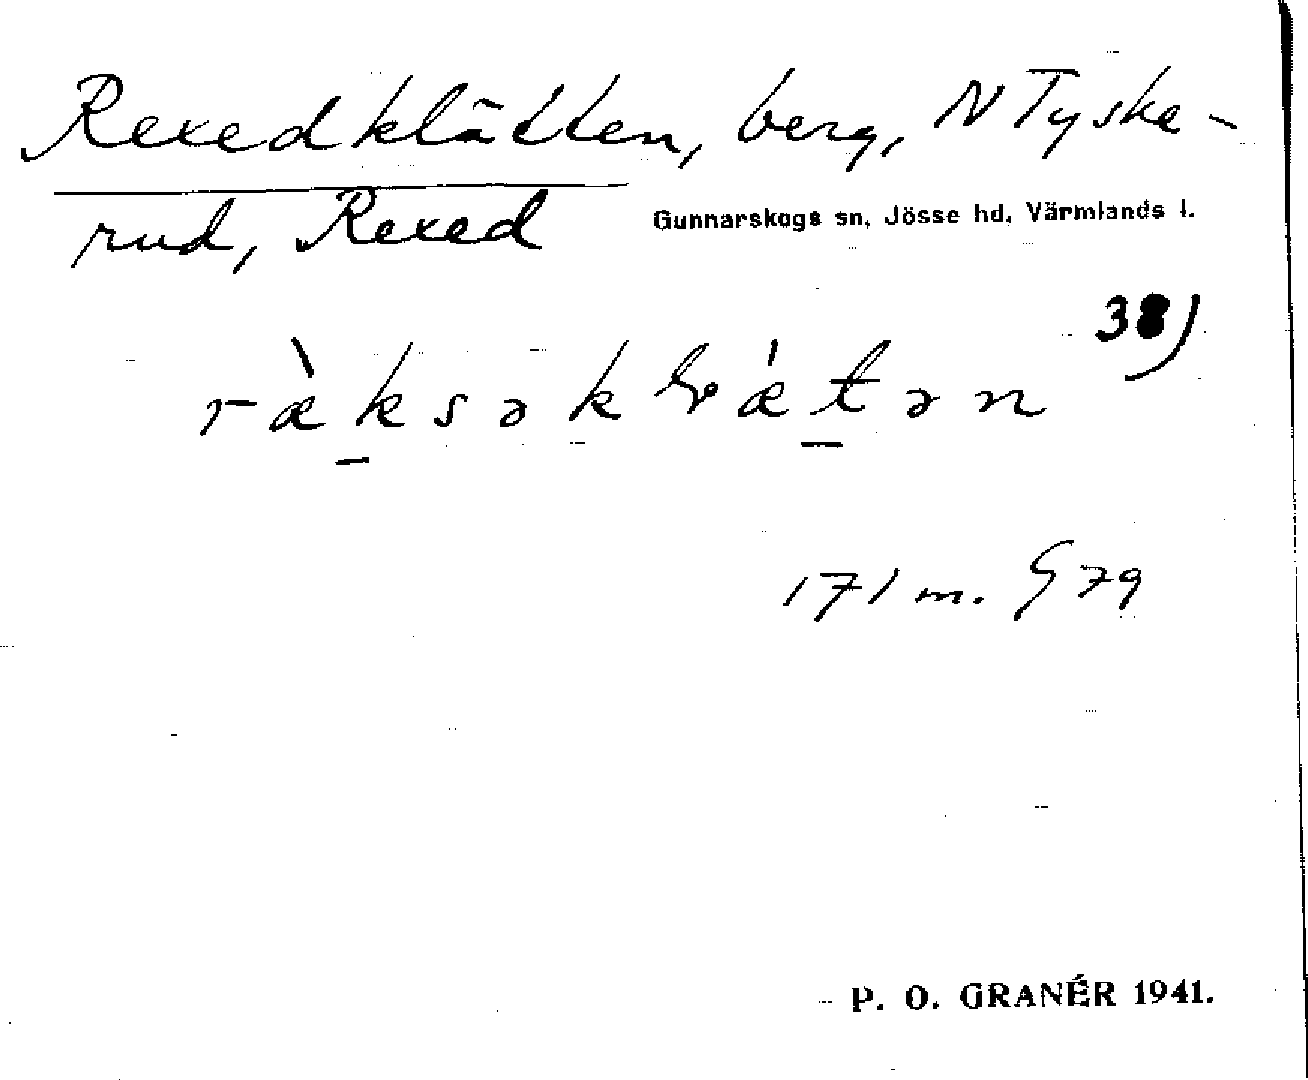 Rexedklätten, berg, N Tyske-
rud, Rexed
Gunnarskogs sn, Jösse hd, Värmlands l.
38)
ræ̀ksəkɽǽtən
171 m. G 79
P. O. GRANÉR 1941.